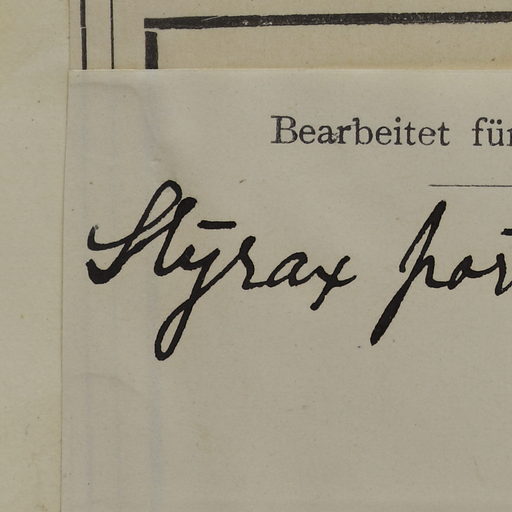 Bearbeitet für
Styrax por